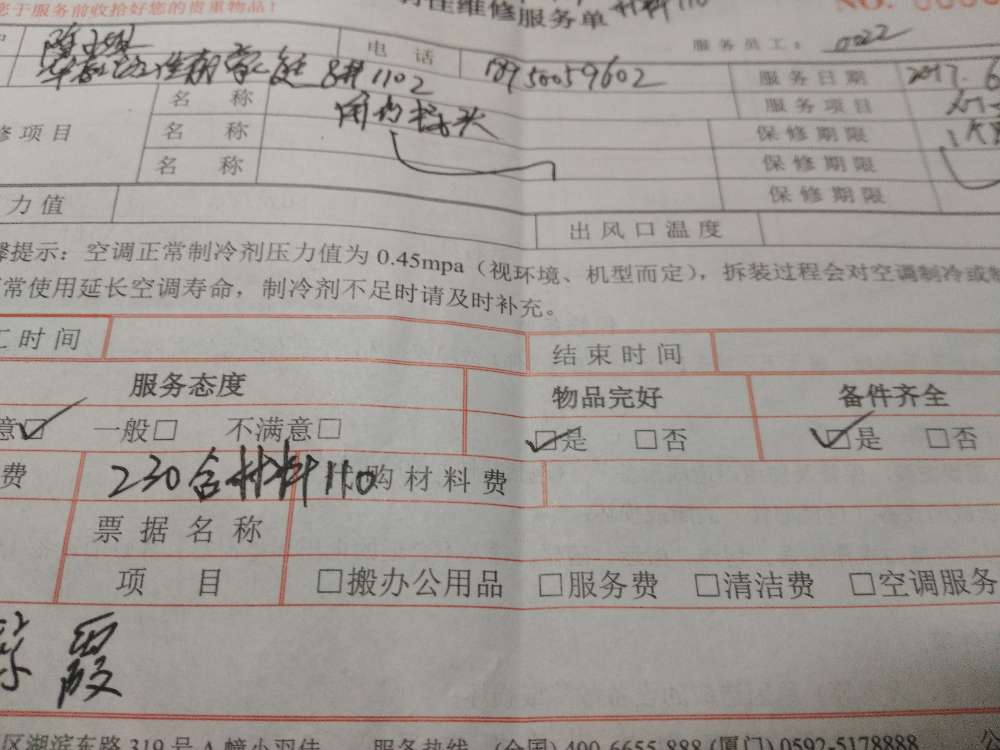 您于服务前收拾好您的贵重物品!
佳维修服务单 材料110
NO.
服务员工: 0022
电话 18950059602 服务日期 2017.6
8栋1102
名称 服务项目
修项目 名称 接头 保修期限
名称 保修期限
保修期限
力值 出风口温度
馨提示:空调正常制冷剂压力值为0.45mpa(视环境、机型而定),拆装过程会对空调制冷或制
常使用延长空调寿命,制冷剂不足时请及时补充。
工时间 结束时间
服务态度 物品完好 备件齐全
意☑ 一般□ 不满意□ ☑是 □否 ☑是 □否
费 230含材料110 代购材料费
票据名称
项目 □搬办公用品 □服务费 □清洁费 □空调服务
霞
区湖滨东路319号A幢小羽佳 服务热线 (全国)400-6655-888(厦门)0592-5178888 公